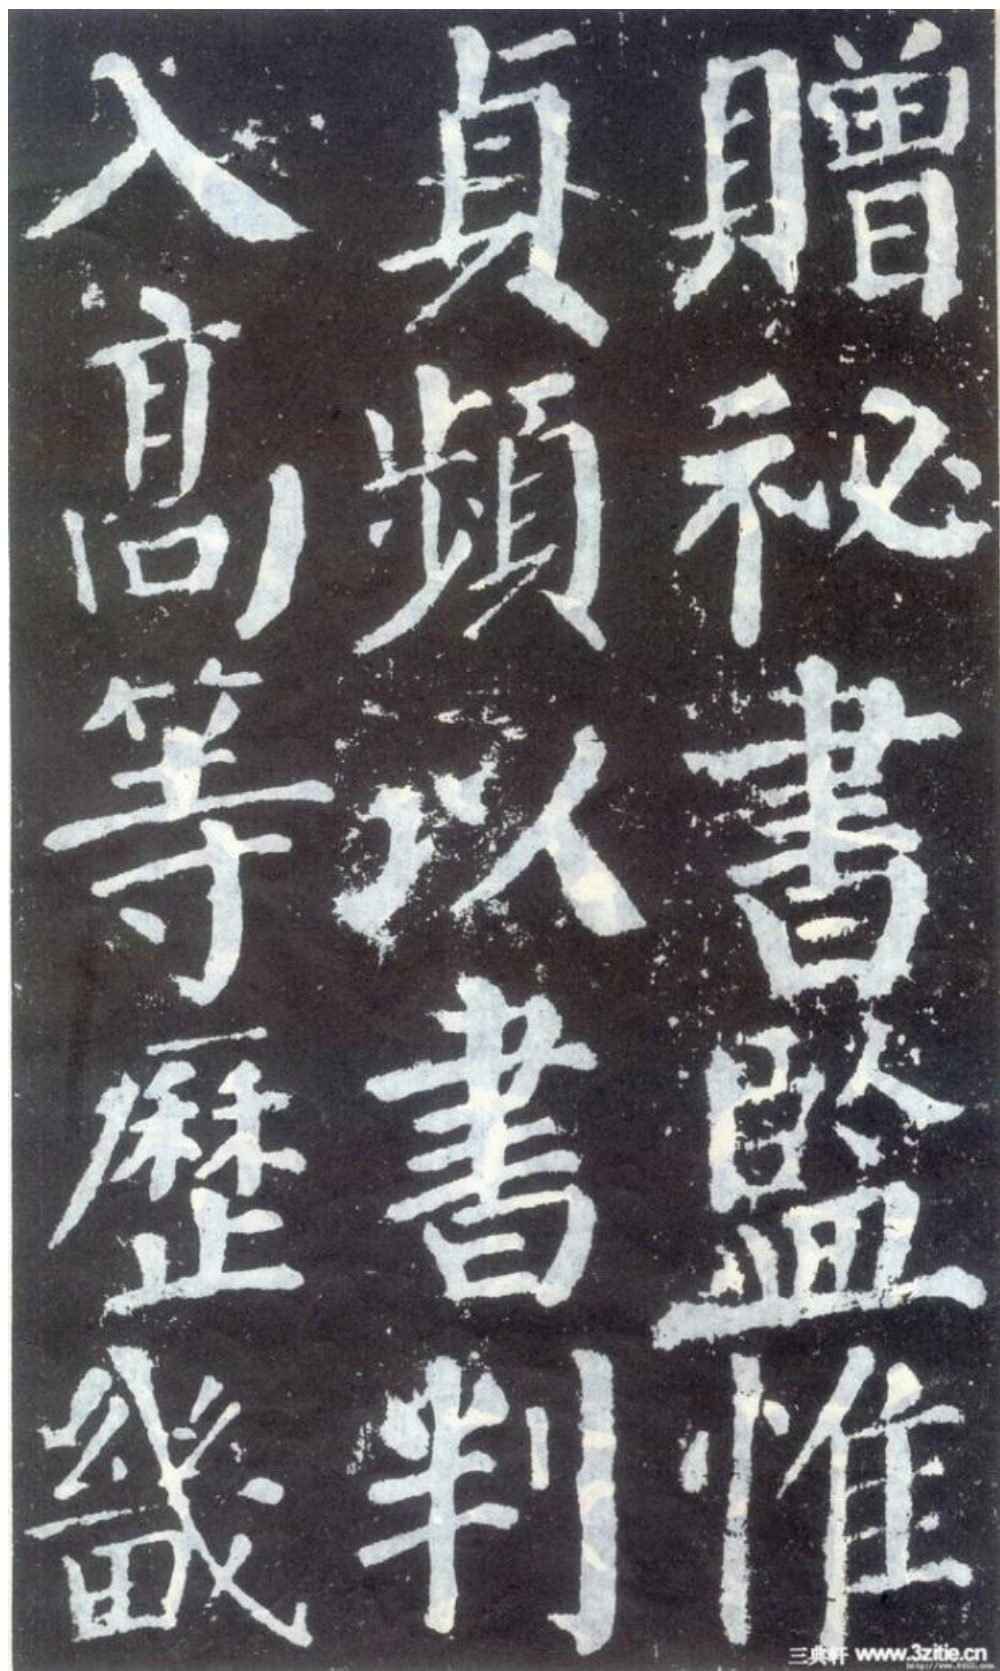 贈祕書監惟
貞頻以書判
入高等歷畿
三典軒 www.3zitie.cn